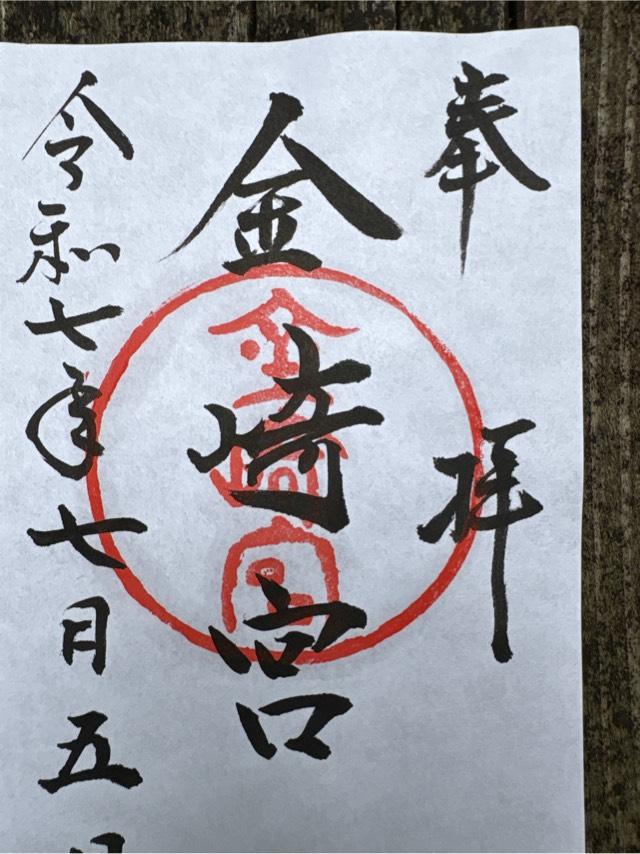 奉拝
金崎宮
金崎宮
令和七年七月五日